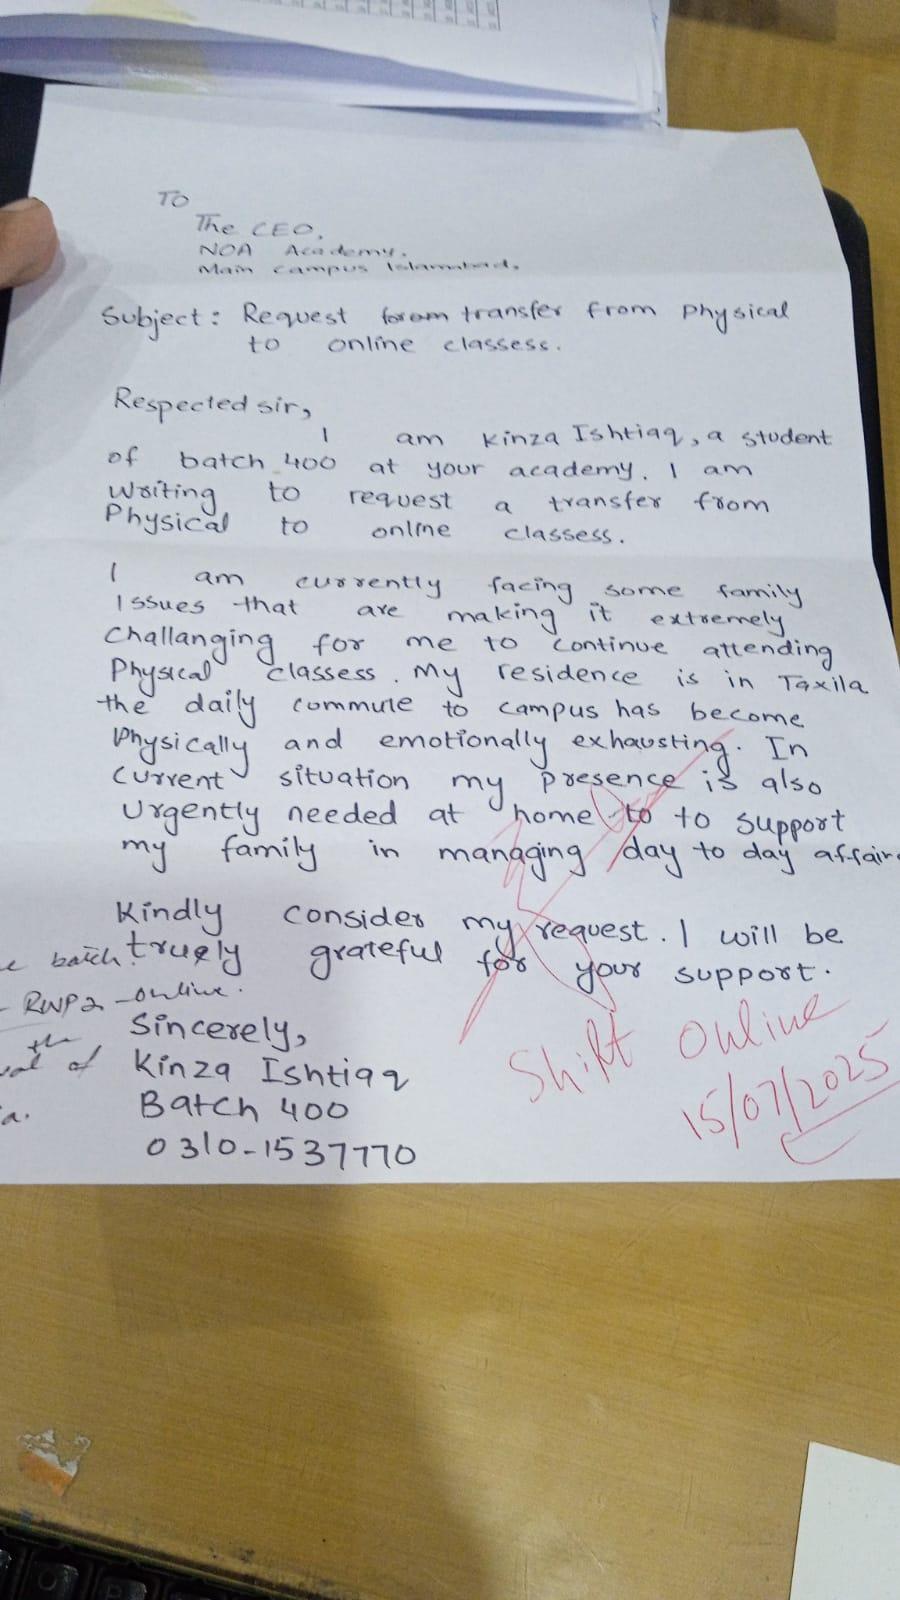 TO
The CEO,
NOA Academy,
Main campus Islamabad,
Subject: Request transfer from Physical
to online classess.
Respected sir,
I am Kinza Ishtiaq, a student
of batch 400 at your academy. I am
writing to request a transfer from
Physical to online classess.
I am currently facing some family
Issues that are making it extremely
challanging for me to continue attending
Physical classess. My residence is in Taxila
the daily commute to campus has become
Physically and emotionally exhausting. In
current situation my presence is also
urgently needed at home to to support
my family in managing day to day affair
Kindly consider my request. I will be
batch. truely grateful for your support.
RWP2 - online.
Sincerely,
the
of Kinza Ishtiaq
Batch 400
0310-1537770
Shift Online
15/07/2025